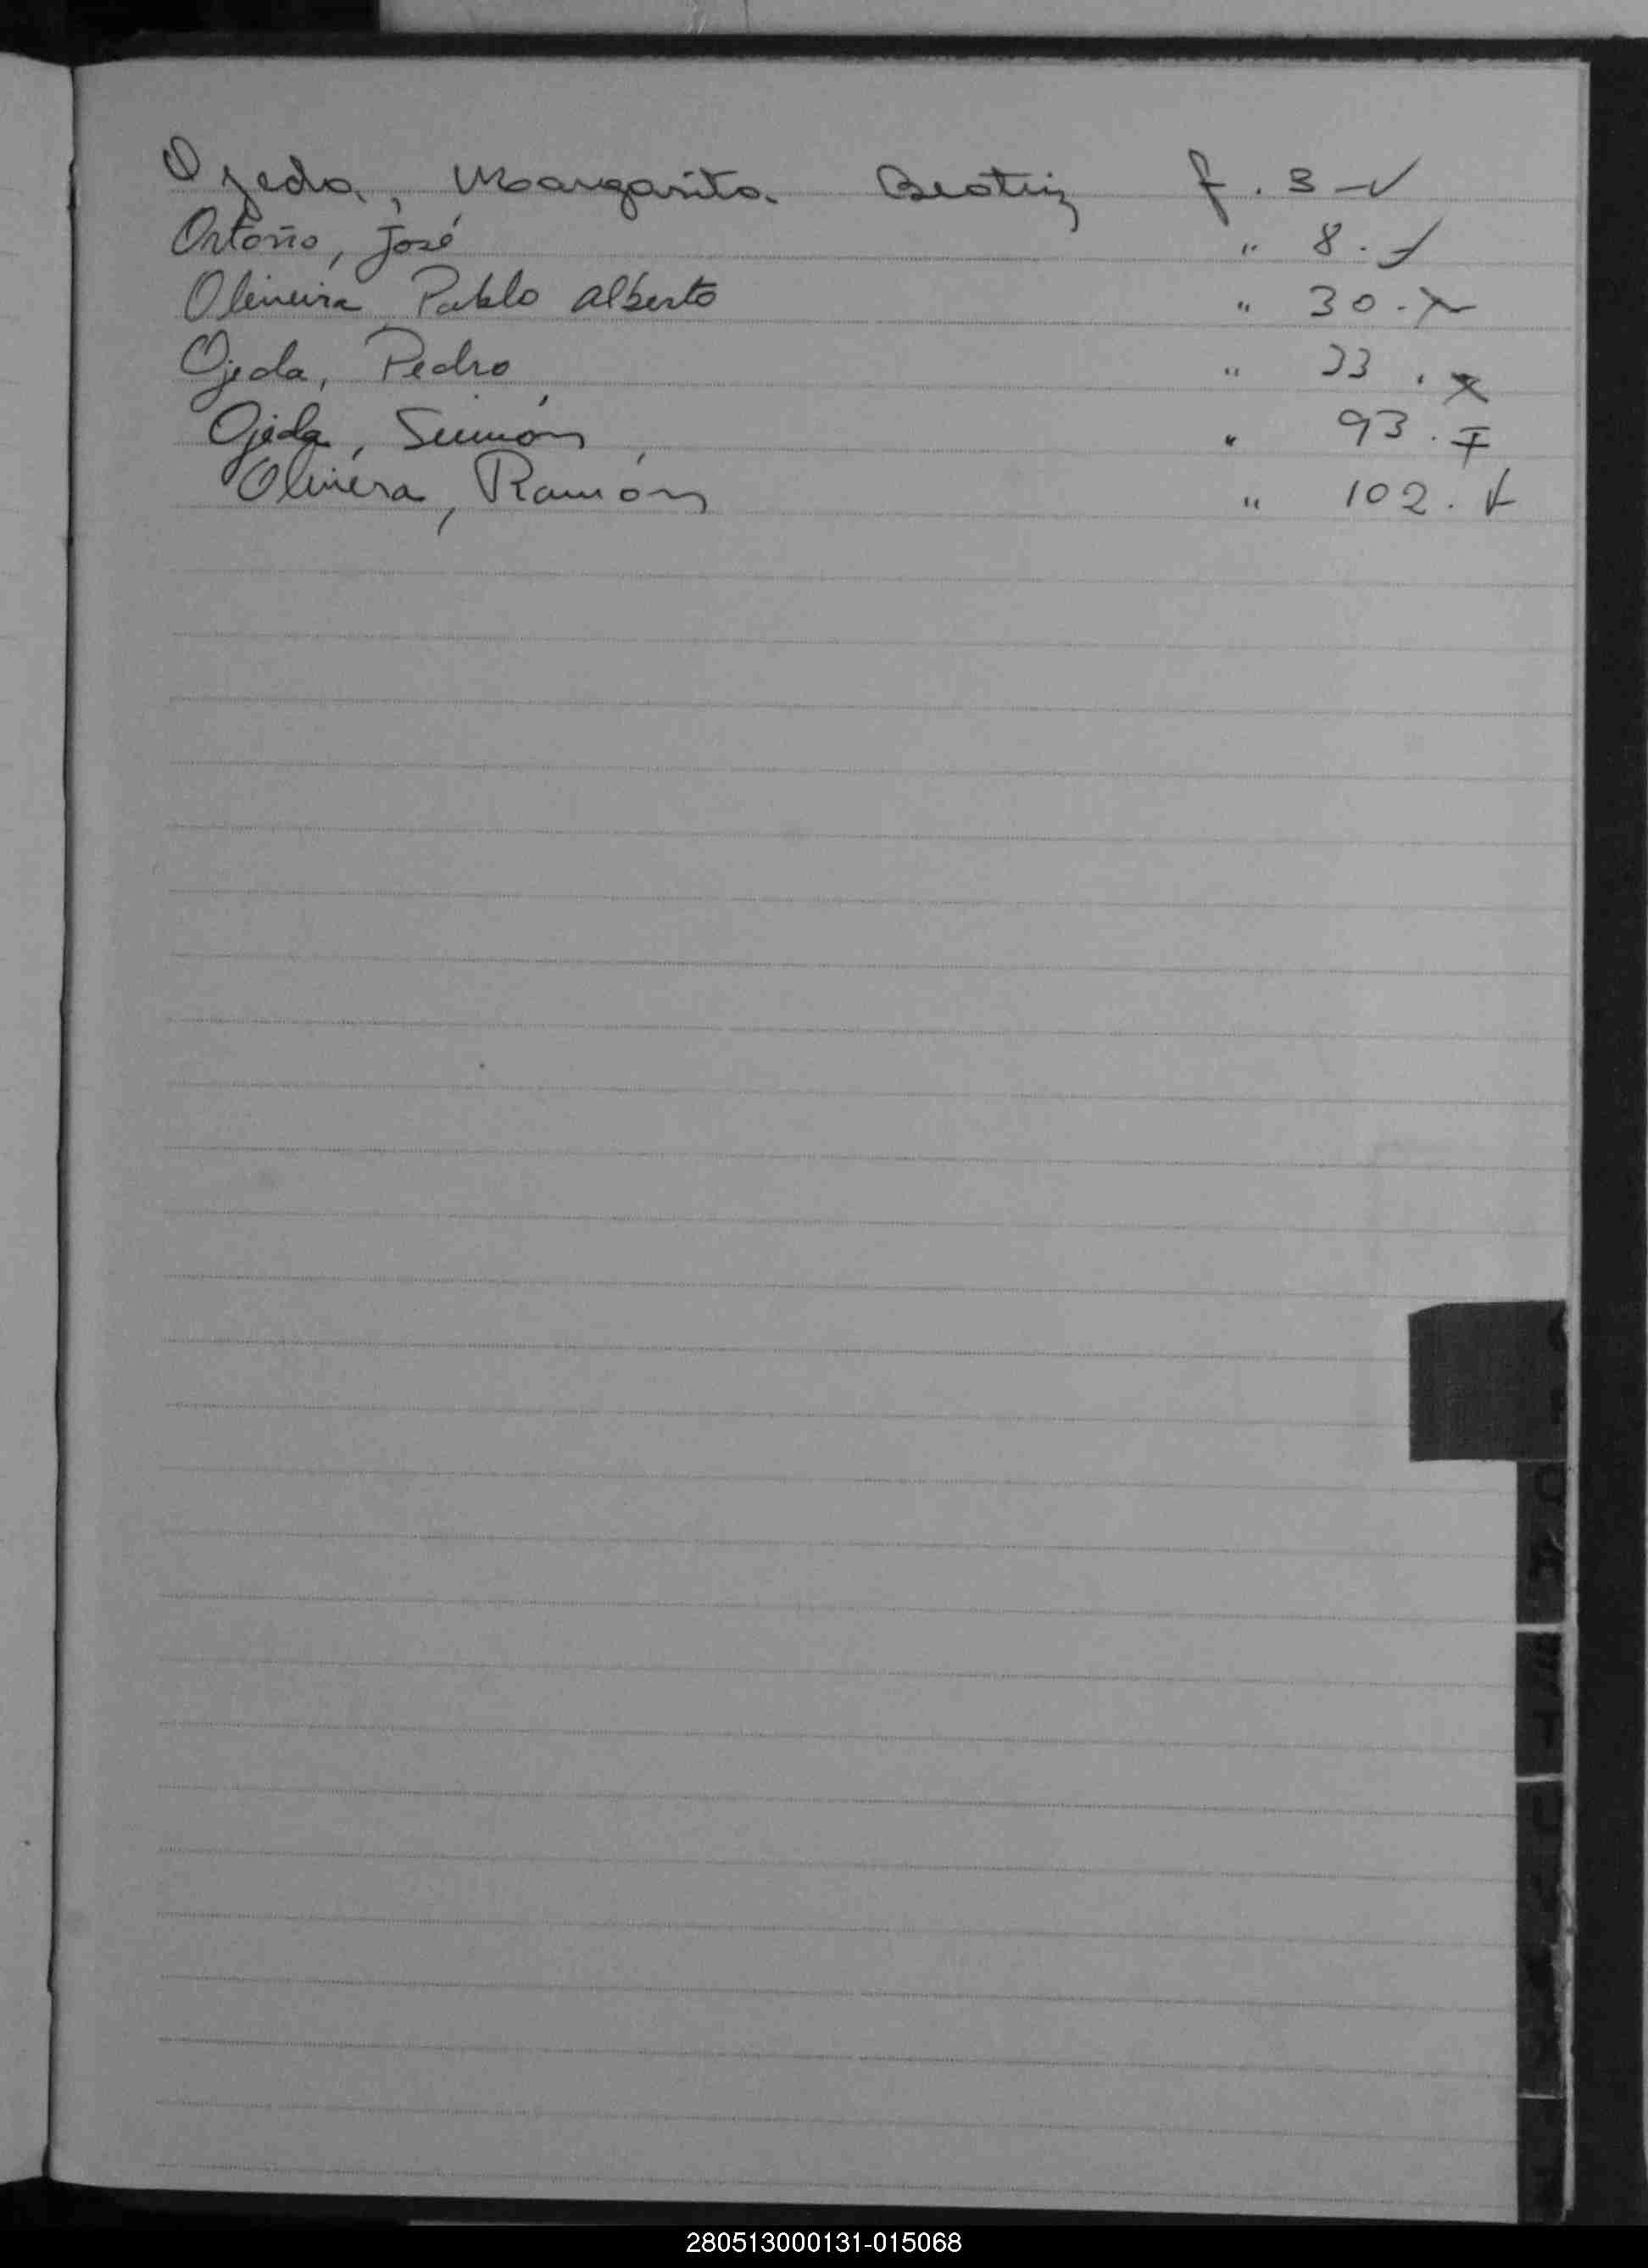 Ojeda, Margarita Beatriz f. 3
Ortoño, José " 8.
Oliveira Pablo Alberto " 30.
Ojeda, Pedro " 33.
Ojeda, Simón " 93.
Olivera, Ramón " 102.
280513000131-015068